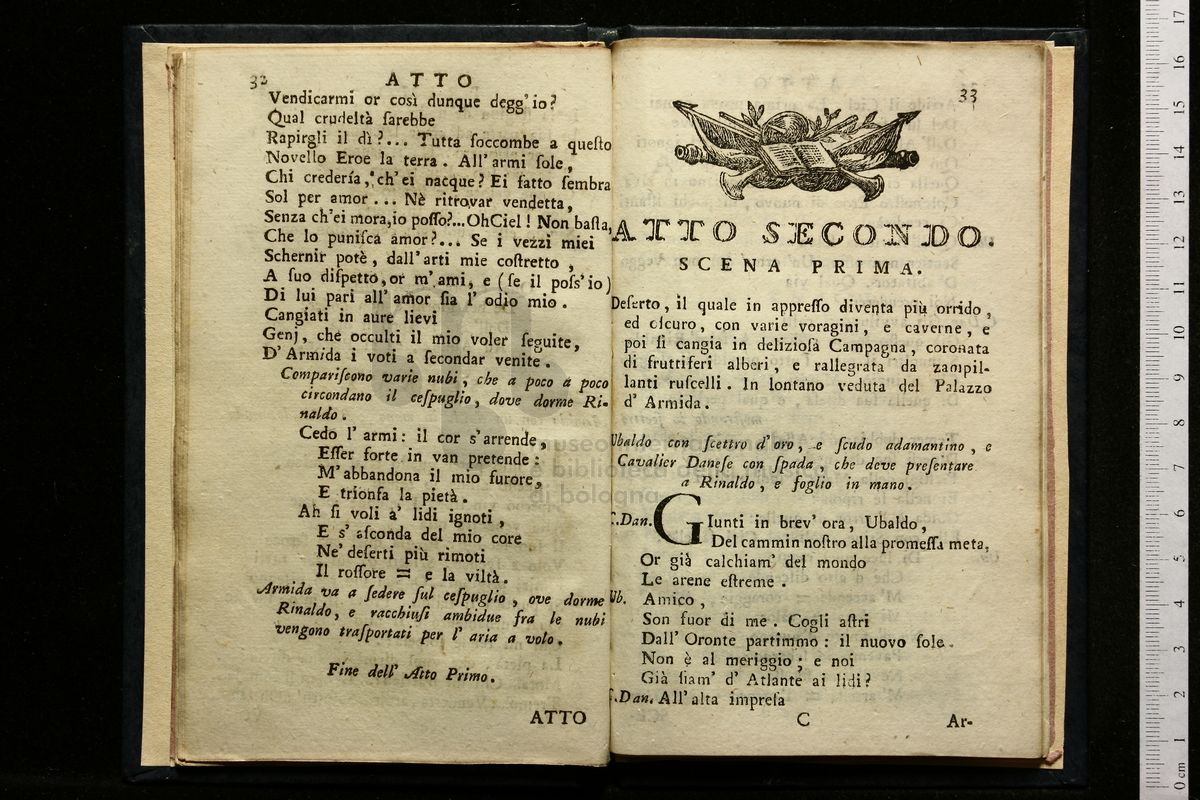 32
ATTO
Vendicarmi or così dunque degg' io?
Qual crudeltà ſarebbe
Rapirgli il dì?... Tutta ſoccombe a queſto
Novello Eroe la terra. All' armi ſole,
Chi credería, ch' ei nacque? Ei fatto ſembra
Sol per amor... Nè ritrovar vendetta,
Senza ch' ei mora, io poſſo?... Oh Ciel! Non baſta,
Che lo puniſca amor?... Se i vezzi miei
Schernir potè, dall' arti mie coſtretto,
A ſuo diſpetto, or m' ami, e (ſe il poſs' io)
Di lui pari all' amor ſia l' odio mio.
Cangiati in aure lievi
Genj, che occulti il mio voler ſeguite,
D' Armida i voti a ſecondar venite.
Compariſcono varie nubi, che a poco a poco
circondano il ceſpuglio, dove dorme Ri-
naldo.
Cedo l' armi: il cor s' arrende,
Eſſer forte in van pretende:
M' abbandona il mio furore,
E trionfa la pietà.
Ah ſi voli a' lidi ignoti,
E s' aſconda del mio core
Ne' deſerti più rimoti
Il roſſore = e la viltà.
Armida va a ſedere ſul ceſpuglio, ove dorme
Rinaldo, e racchiuſi ambidue fra le nubi
vengono traſportati per l' aria a volo.
Fine dell' Atto Primo.
ATTO
33
ATTO SECONDO.
SCENA PRIMA.
Deſerto, il quale in appreſſo diventa più orrido,
ed oſcuro, con varie voragini, e caverne, e
poi ſi cangia in delizioſa Campagna, coronata
di fruttiferi alberi, e rallegrata da zampil-
lanti ruſcelli. In lontano veduta del Palazzo
d' Armida.
Ubaldo con ſcettro d' oro, e ſcudo adamantino, e
Cavalier Daneſe con ſpada, che deve preſentare
a Rinaldo, e foglio in mano.
C.Dan. GIunti in brev' ora, Ubaldo,
Del cammin noſtro alla promeſſa meta,
Or già calchiam' del mondo
Le arene eſtreme.
Ub. Amico,
Son fuor di me. Cogli aſtri
Dall' Oronte partimmo: il nuovo ſole
Non è al meriggio; e noi
Già ſiam' d' Atlante ai lidi?
C.Dan. All' alta impreſa
C
Ar-
museo
biblioteca della
di bologna
17
16
15
14
13
12
11
10
9
8
7
6
5
4
3
2
1
0 cm